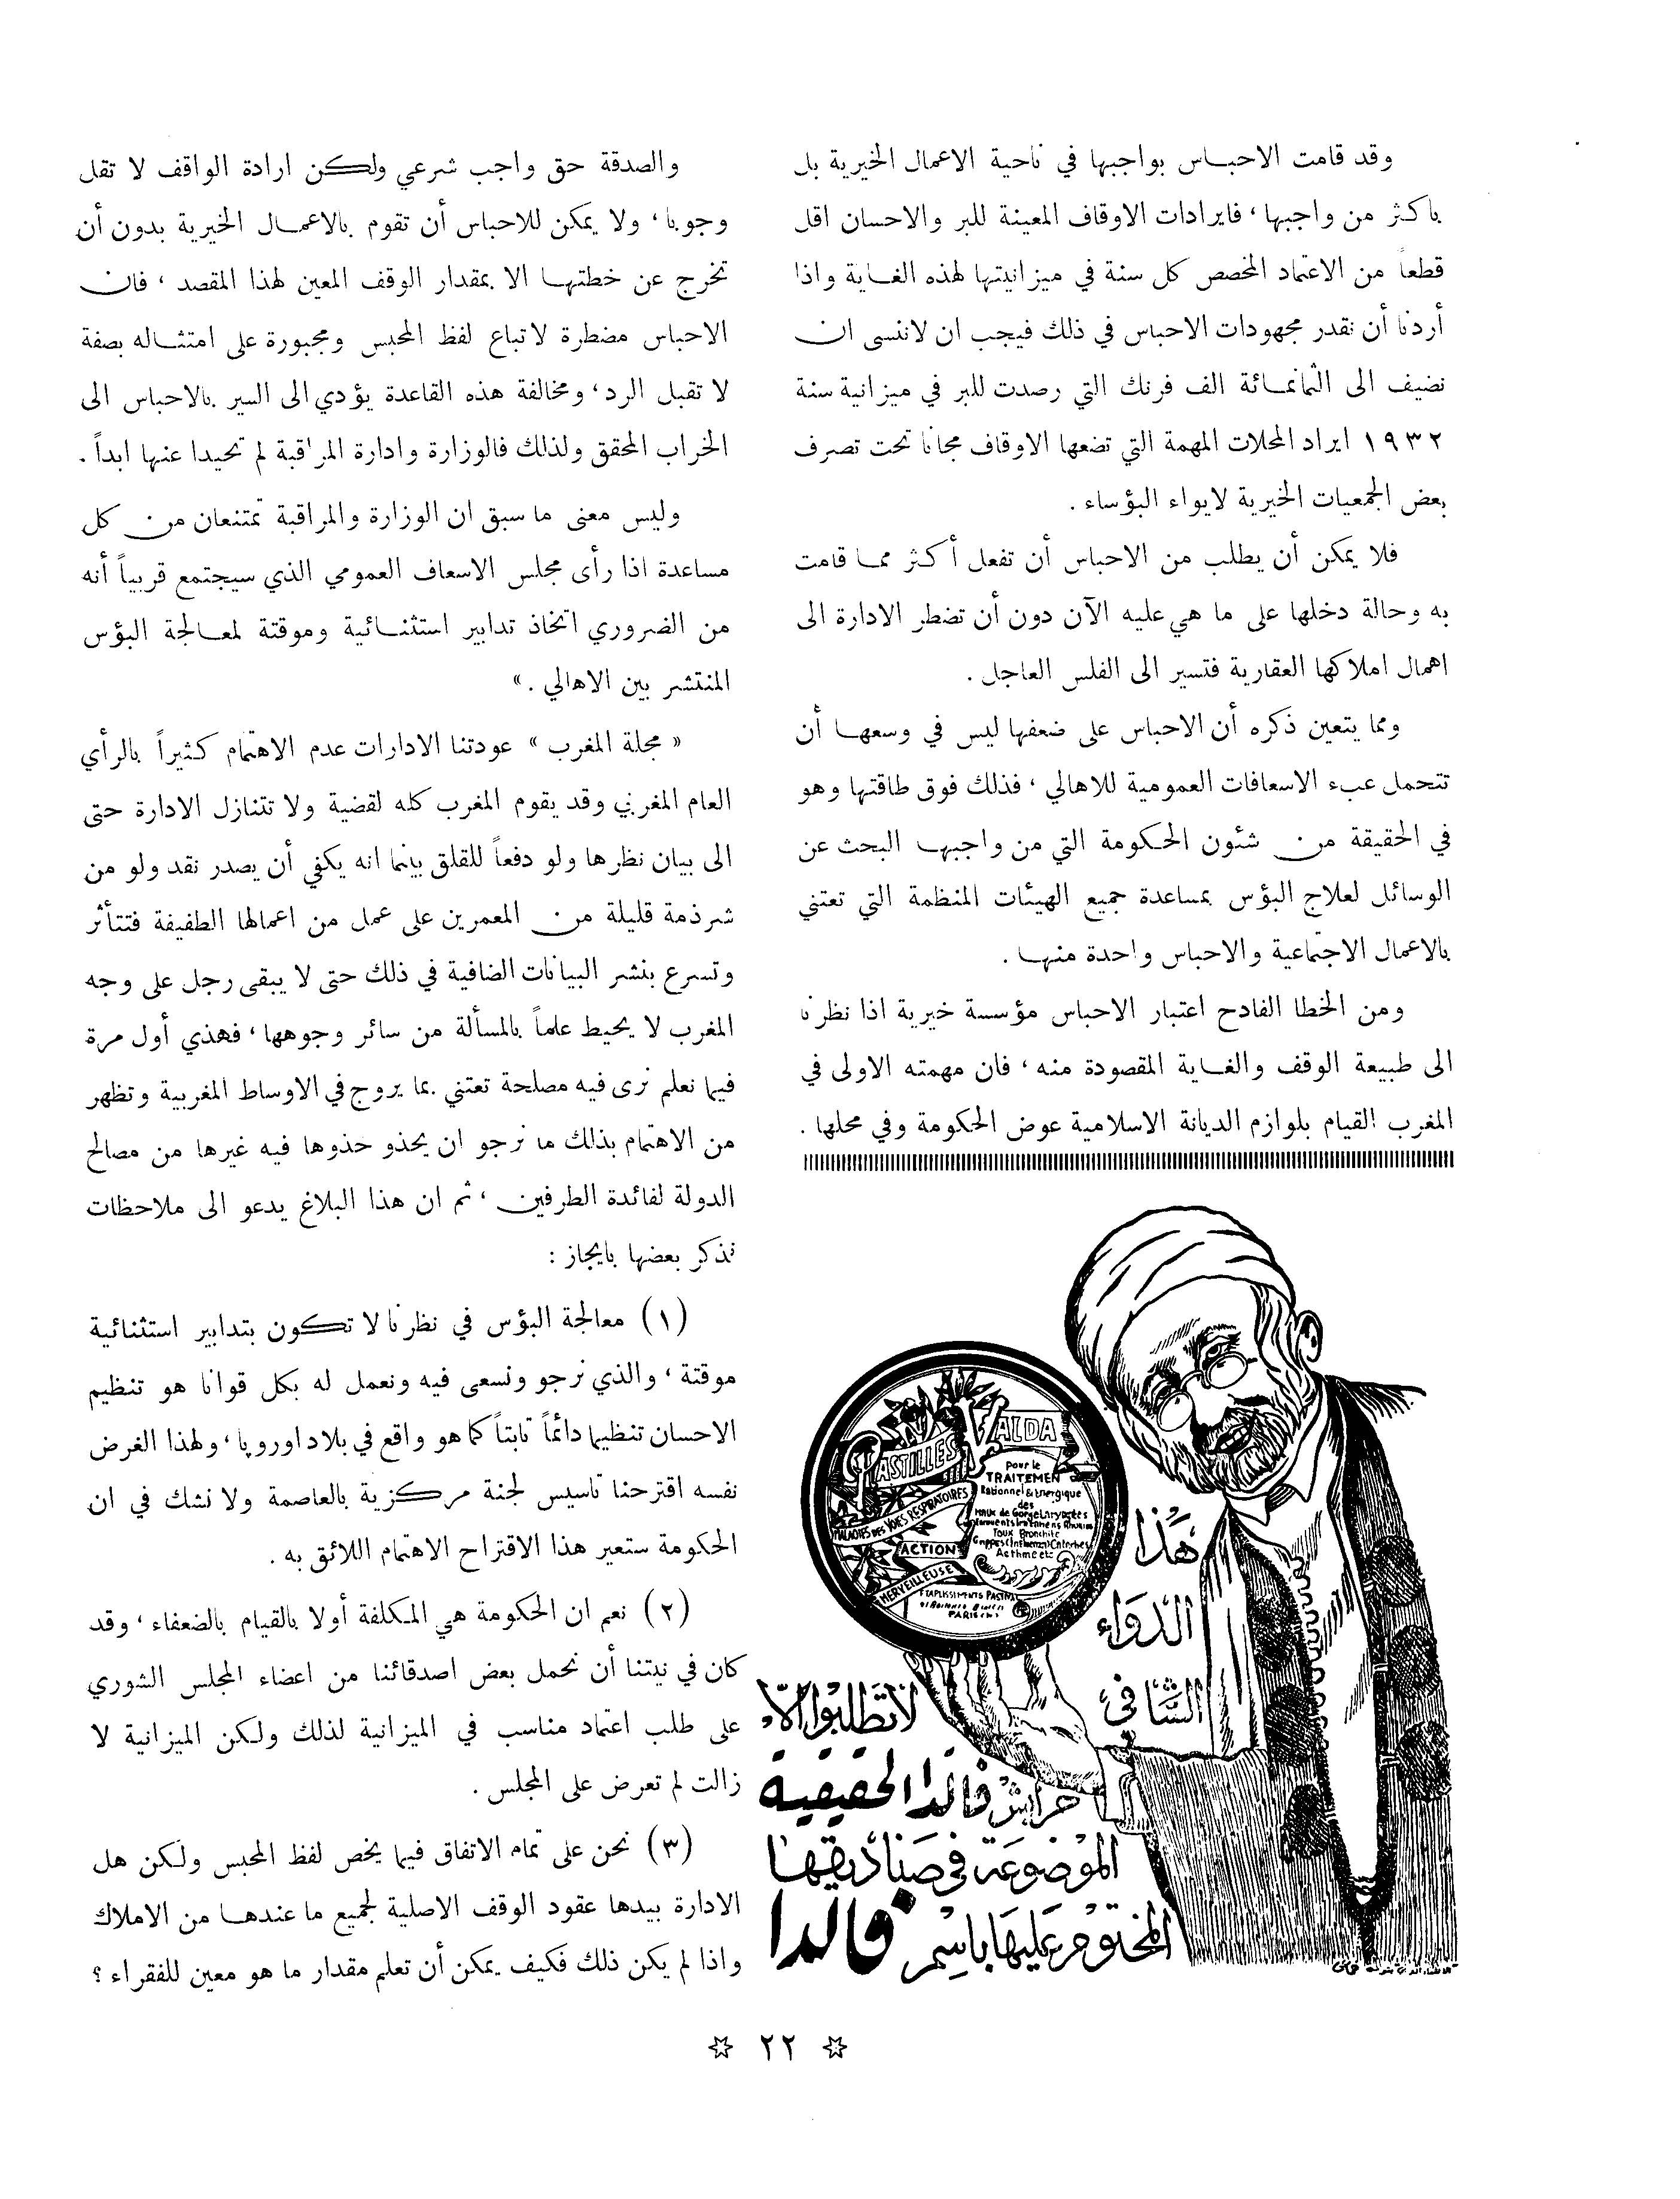 وقد قامت الاحباس بواجبها في ناحية الاعمال الخيرية بل
باكثر من واجبها ، فايرادات الاوقاف المعينة للبر والاحسان اقل
قطعاً من الاعتماد المخصص كل سنة في ميزانيتها لهذه الغاية واذا
أردنا أن نقدر مجهودات الاحباس في ذلك فيجب ان لاننسى ان
نضيف الى الثمانمائة الف فرنك التي رصدت للبر في ميزانية سنة
١٩٣٢ ايراد المحلات المهمة التي تضعها الاوقاف مجانا تحت تصرف
بعض الجمعيات الخيرية لايواء البؤساء .
فلا يمكن أن يطلب من الاحباس أن تفعل أكثر مما قامت
به وحالة دخلها على ما هي عليه الآن دون أن تضطر الادارة الى
اهمال املاكها العقارية فتسير الى الفلس العاجل .
ومما يتعين ذكره أن الاحباس على ضعفها ليس في وسعها أن
تتحمل عبء الاسعافات العمومية للاهالي ، فذلك فوق طاقتها وهو
في الحقيقة من شئون الحكومة التي من واجبها البحث عن
الوسائل لعلاج البؤس بمساعدة جميع الهيئات المنظمة التي تعتني
بالاعمال الاجتماعية والاحباس واحدة منها .
ومن الخطا الفادح اعتبار الاحباس مؤسسة خيرية اذا نظرنا
الى طبيعة الوقف والغاية المقصودة منه ، فان مهمته الاولى في
المغرب القيام بلوازم الديانة الاسلامية عوض الحكومة وفي محلها .
PASTILLES VALDA
pour le
TRAITEMEN
Rationnel & Energique
des
MALADIES DES VOIES RESPIRATOIRES
Toux Bronchite
Asthme etc
ACTION
MERVEILLEUSE
PARIS
هذا
الدواء
الشافي
لا تطلبوا الا
فالدا الحقيقية
الموضوعة في صناديقها
المختوم عليها باسم فالدا
والصدقة حق واجب شرعي ولكن ارادة الواقف لا تقل
وجوبا ، ولا يمكن للاحباس أن تقوم بالاعمال الخيرية بدون أن
تخرج عن خطتها الا بمقدار الوقف المعين لهذا المقصد ، فان
الاحباس مضطرة لاتباع لفظ المحبس ومجبورة على امتثاله بصفة
لا تقبل الرد ، ومخالفة هذه القاعدة يؤدي الى السير بالاحباس الى
الخراب المحقق ولذلك فالوزارة وادارة المراقبة لم تحيدا عنها ابداً .
وليس معنى ما سبق ان الوزارة والمراقبة تمتنعان من كل
مساعدة اذا رأى مجلس الاسعاف العمومي الذي سيجتمع قريباً أنه
من الضروري اتخاذ تدابير استثنائية وموقتة لمعالجة البؤس
المنتشر بين الاهالي . »
« مجلة المغرب » عودتنا الادارات عدم الاهتمام كثيراً بالرأي
العام المغربي وقد يقوم المغرب كله لقضية ولا تتنازل الادارة حتى
الى بيان نظرها ولو دفعاً للقلق بينما انه يكفي أن يصدر نقد ولو من
شرذمة قليلة من المعمرين على عمل من اعمالها الطفيفة فتتأثر
وتسرع بنشر البيانات الضافية في ذلك حتى لا يبقى رجل على وجه
المغرب لا يحيط علماً بالمسألة من سائر وجوهها ، فهذي أول مرة
فيما نعلم نرى فيه مصلحة تعتني بما يروج في الاوساط المغربية وتظهر
من الاهتمام بذلك ما نرجو ان يحذو حذوها فيه غيرها من مصالح
الدولة لفائدة الطرفين ، ثم ان هذا البلاغ يدعو الى ملاحظات
نذكر بعضها بايجاز :
(١) معالجة البؤس في نظرنا لا تكون بتدابير استثنائية
موقتة ، والذي نرجو ونسعى فيه ونعمل له بكل قوانا هو تنظيم
الاحسان تنظيما دائماً ثابتاً كما هو واقع في بلاد اوروپا ، ولهذا الغرض
نفسه اقترحنا تاسيس لجنة مركزية بالعاصمة ولا نشك في ان
الحكومة ستعير هذا الاقتراح الاهتمام اللائق به .
(٢) نعم ان الحكومة هي المكلفة أولا بالقيام بالضعفاء ، وقد
كان في نيتنا أن نحمل بعض اصدقائنا من اعضاء المجلس الشوري
على طلب اعتماد مناسب في الميزانية لذلك ولكن الميزانية لا
زالت لم تعرض على المجلس .
(٣) نحن على تمام الاتفاق فيما يخص لفظ المحبس ولكن هل
الادارة بيدها عقود الوقف الاصلية لجميع ما عندها من الاملاك
واذا لم يكن ذلك فكيف يمكن أن تعلم مقدار ما هو معين للفقراء ؟
٢٢